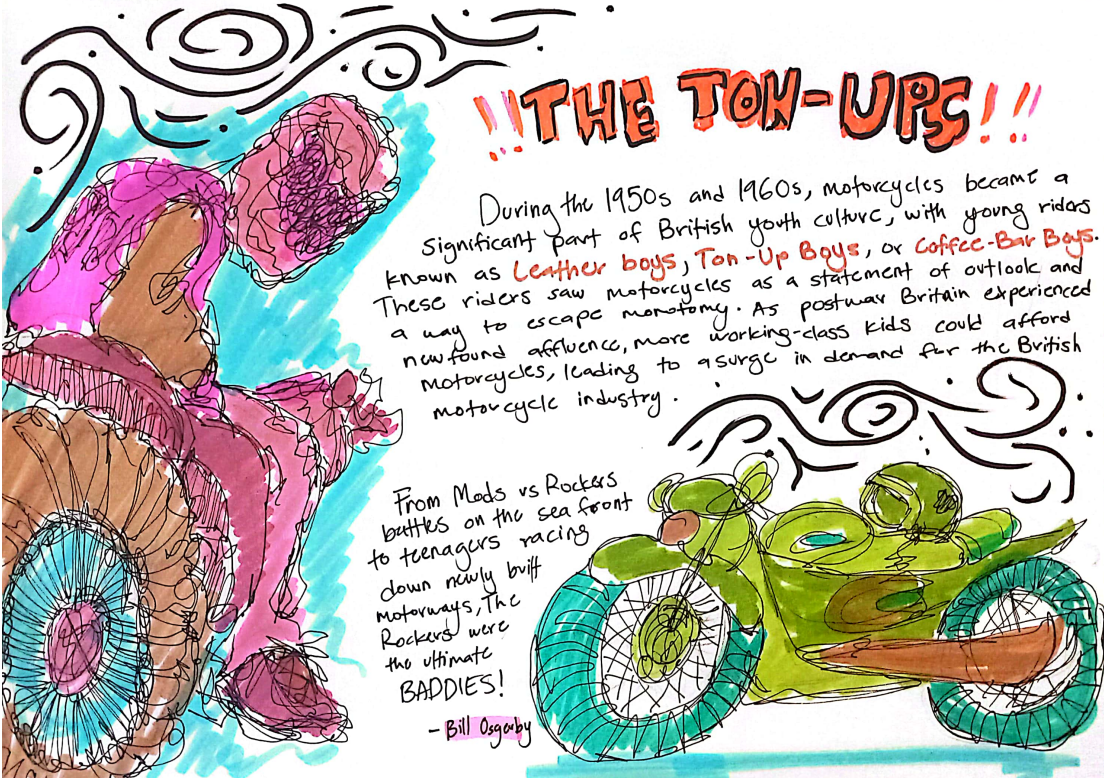 !! THE TON-UPS!!!
During the 1950s and 1960s, motorcycles became a
significant part of British youth culture, with young riders
known as Leather boys, Ton-Up Boys, or Coffee-Bar Boys.
These riders saw motorcycles as a statement of outlook and
a way to escape monotomy. As postwar Britain experienced
newfound affluence, more working-class kids could afford
motorcycles, leading to a surge in demand for the British
motorcycle industry.
From Mods vs Rockers
battles on the sea front
to teenagers racing
down newly built
motorways, The
Rockers were
the ultimate
BADDIES!
- Bill Osgerby